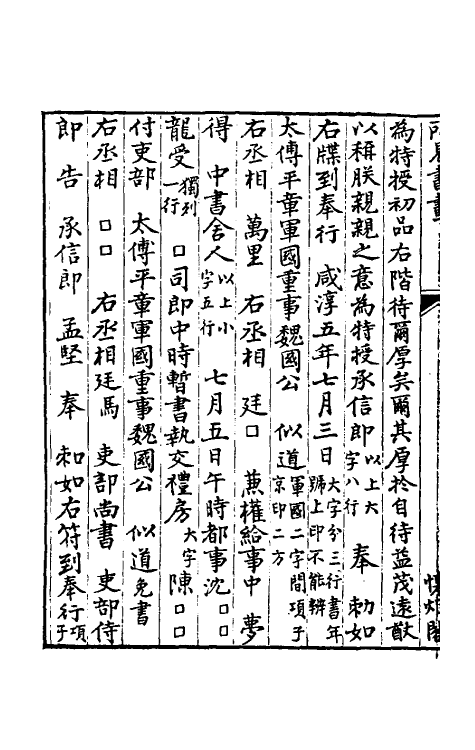 為特授初品右階待爾厚矣爾其厚扵自待益茂遠猷
以稱朕親親之意為特授承信郎以上六字八行　奉　勑如
右牒到奉行　咸淳五年七月三日大字分三行書年號上印不能辨
太傅平章軍國重事魏國公　似道軍國二字間項子京印二方
右丞相　萬里　右丞相　廷□　蕉權給事中　夢
得　中書舍人以上小字五行　七月五日午時都事沈□□
龍受獨列一行　□司郎中時暫書執交禮房大字陳□□
付吏部　太傅平章軍國重事魏國公　似道免書
右丞相　□□　右丞相廷馬　吏部尚書　吏部侍
郎　告　承信郎　孟堅　奉　勑如右符到奉行項子